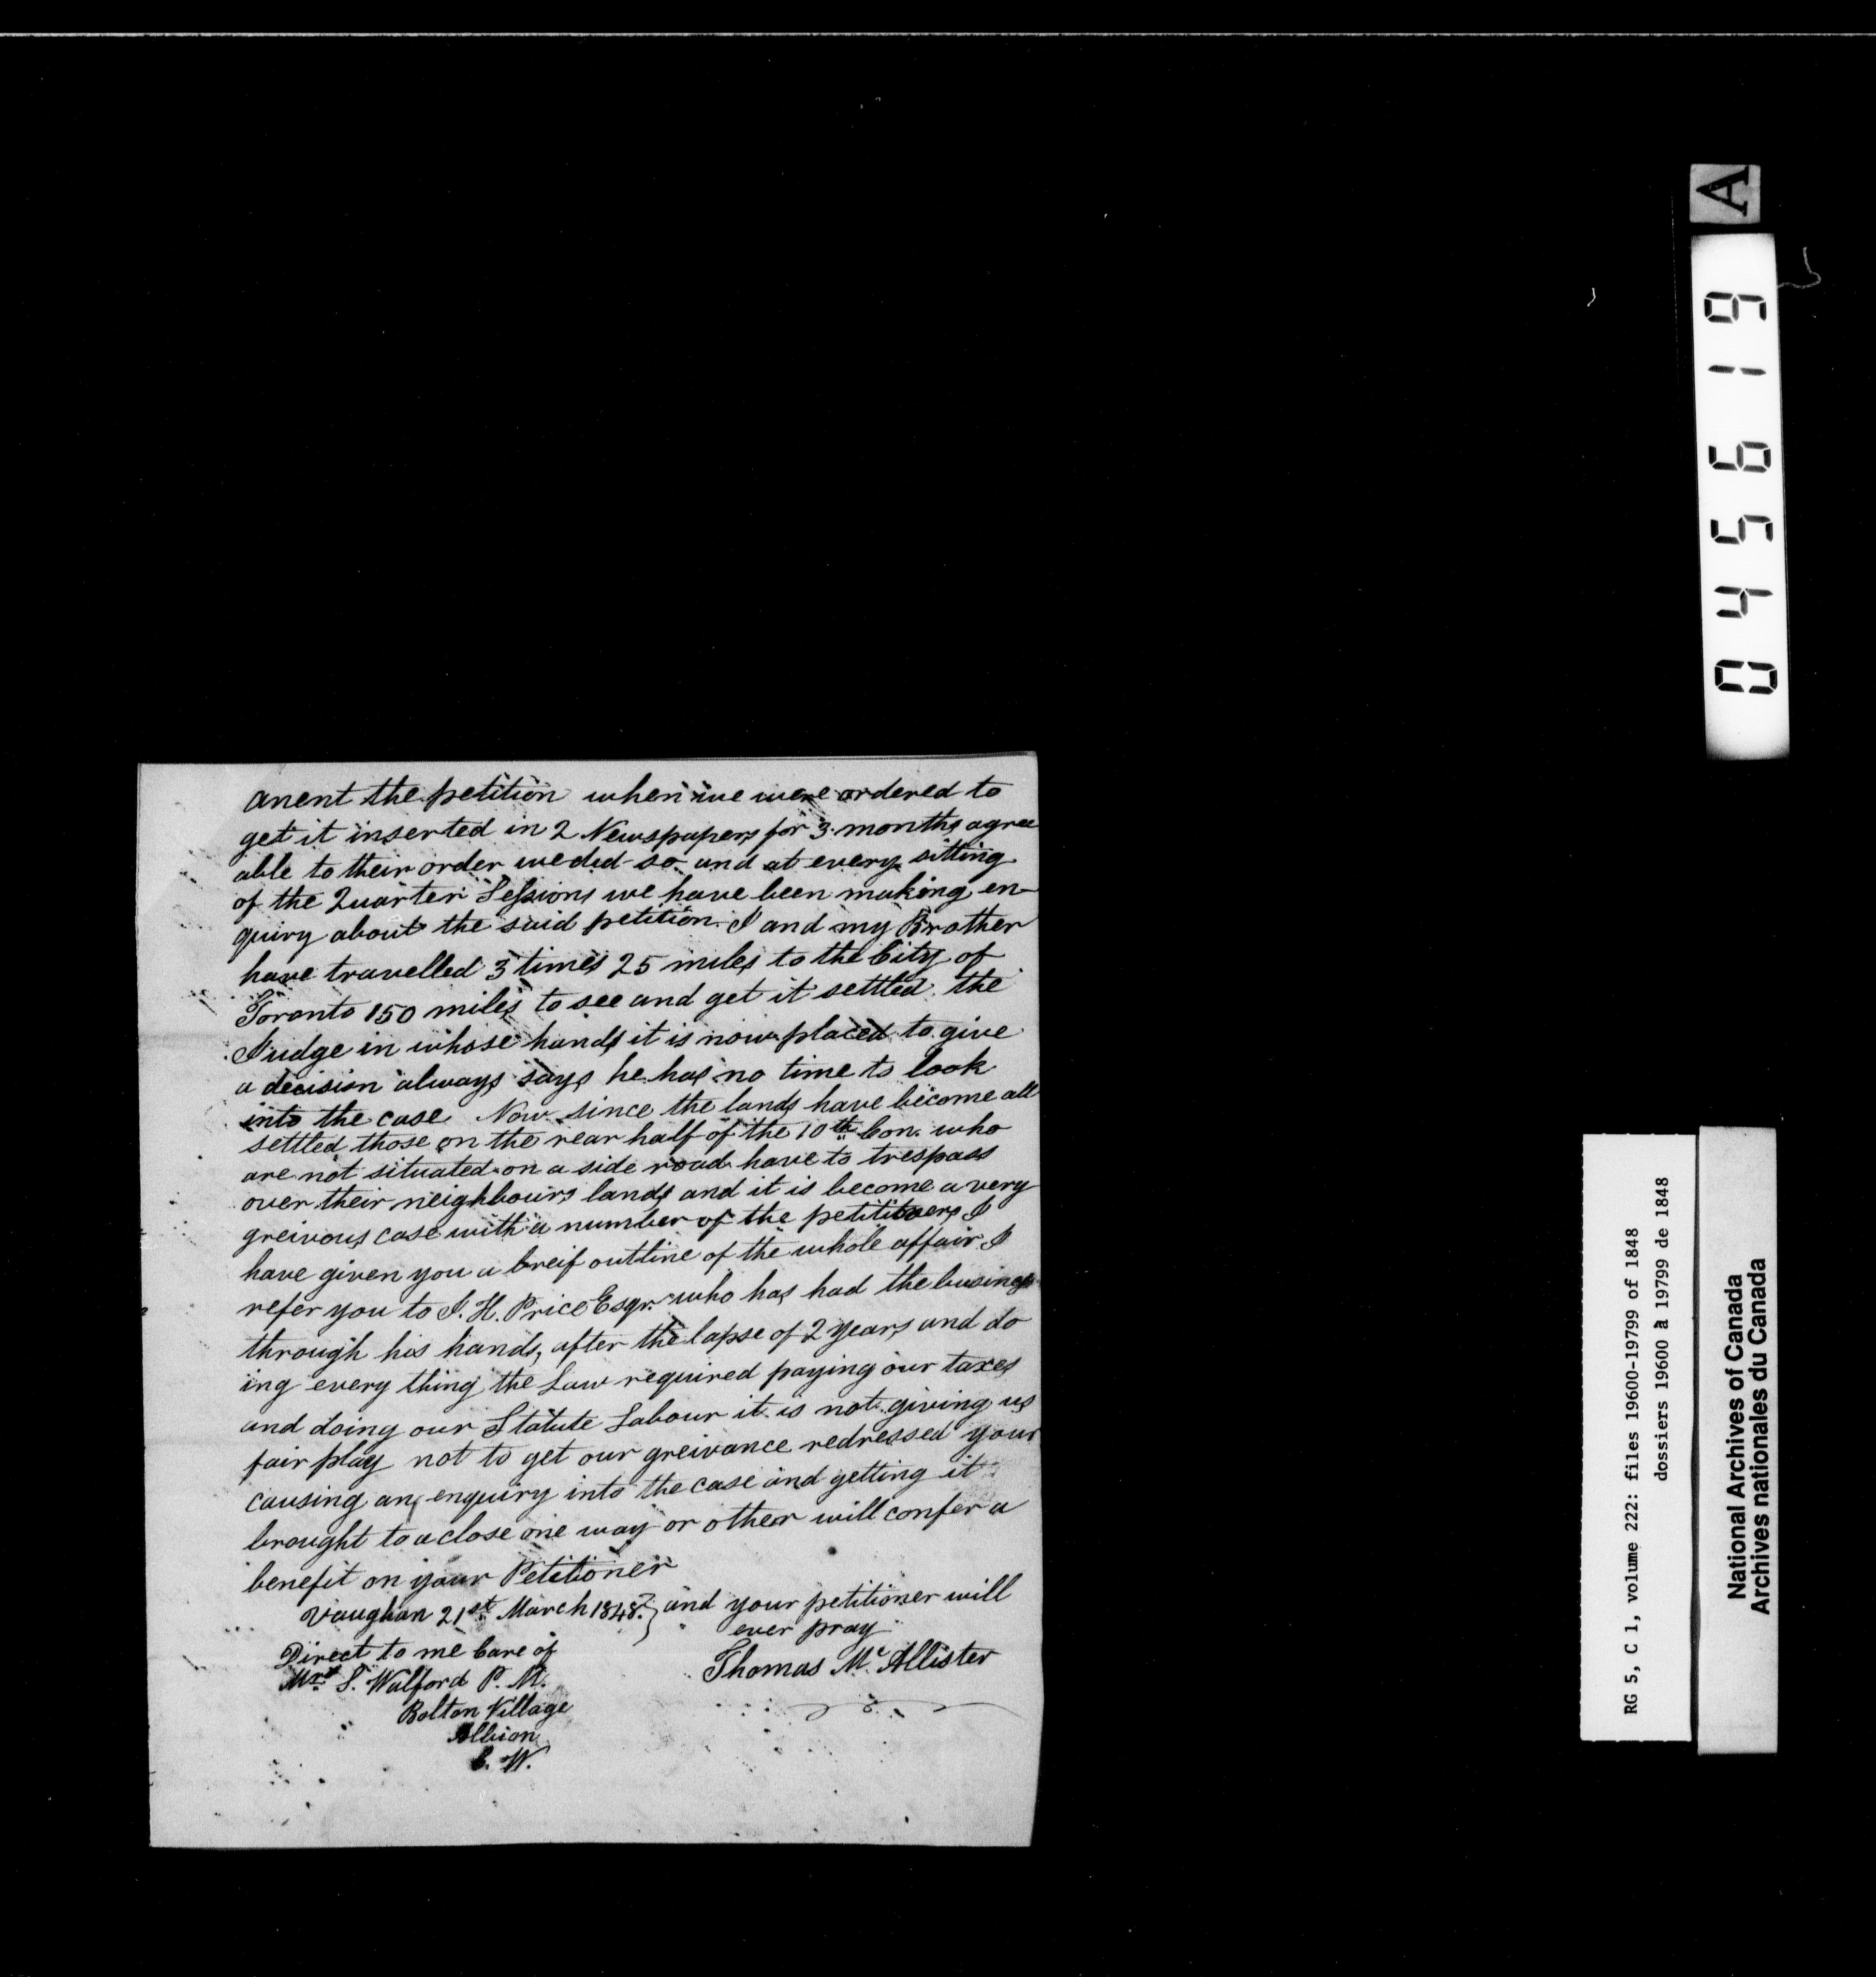 anent the petition when we were ordered to
get it inserted in 2 Newspapers for 3 months agree
able to their order we did so and at every sitting
of the Quarter Sessions we have been making en-
quiry about the said petition. I and my Brother
have travelled 3 times 25 miles to the City of
Toronto 150 miles to see and get it settled. the
Judge in whose hands it is now placed to give
a decision always says he has no time to look
into the case. Now since the lands have become all
settled those on the rear half of the 10th Con. who
are not situated on a side road have to trespass
over their neighbours lands and it is become a very
greivous case with a number of the petitioners I
have given you a breif outline of the whole affair. I
refer you to J. H. Price Esqr. who has had the business
through his hands, after the lapse of 2 years and do
ing every thing the Law required paying our taxes
and doing our Statute Labour it is not giving us
fair play not to get our greivance redressed your
causing an enquiry into the case and getting it
brought to a close one way or other will confer a
benefit on your Petitioner
Vaughan 21st March 1848. } and your petitioner will
ever pray
Thomas Mc Allister
Direct to me Care of
Mr. S. Walford P. M.
Bolton Village
Albion
C. W.
A
045619
RG 5, C 1, volume 222: files 19600-19799 of 1848
dossiers 19600 à 19799 de 1848
National Archives of Canada
Archives nationales du Canada